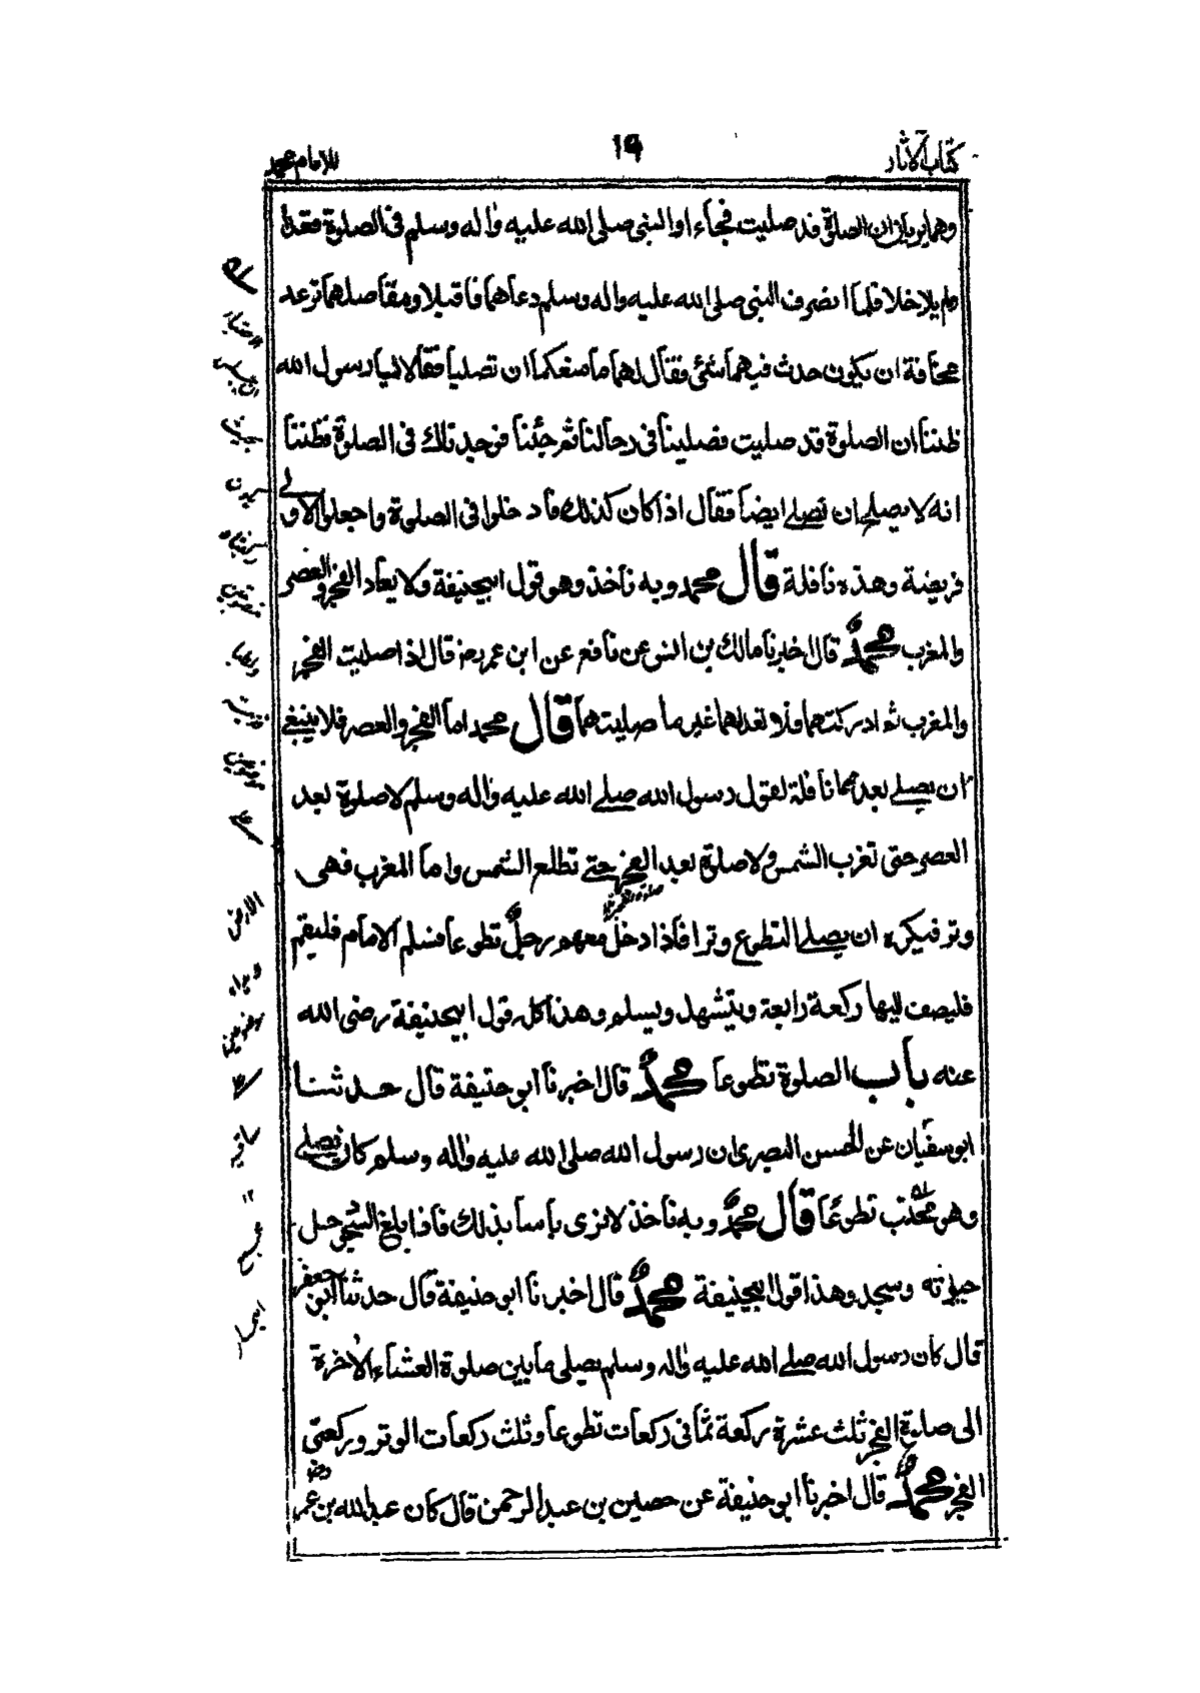 كتاب الآثار
١٩
للامام محمد
وهما يريان ان الصلوة قد صليت فجاءا والنبى صلى الله عليه واله وسلم فى الصلوة فقعدا
ولم يدخلا فلما انصرف النبى صلى الله عليه واله وسلم دعاهما فاقبلا ومفاصلهما ترعد
مخافة ان يكون حدث فيهما شئ فقال لهما ما منعكما ان تصليا فقالا يا رسول الله
ظننا ان الصلوة قد صليت فصلينا فى رحالنا ثم جئنا فوجدناك فى الصلوة فظننا
انه لا يصلح ان نصلى ايضا فقال اذا كان كذلك فادخلوا فى الصلوة واجعلوا الاولى
فريضة وهذه نافلة قال محمد وبه ناخذ وهو قول ابيحنيفة ولا يعاد الفجر والعصر
والمغرب محمد قال اخبرنا مالك بن انس عن نافع عن ابن عمر رض قال اذا صليت الفجر
والمغرب ثم ادركتهما فلا تعدلهما غير ما صليتهما قال محمد اما الفجر والعصر فلا ينبغى
ان يصلى بعدهما نافلة لقول رسول الله صلى الله عليه واله وسلم لا صلوة بعد
العصر حتى تغرب الشمس ولا صلوة بعد الفجر حتى تطلع الشمس واما المغرب فهى
وتر فيكره ان يصلى التطوع وترا فاذا دخل معهم رجل تطوعا فسلم الامام فليقم
فليضف اليها ركعة رابعة ويتشهد ويسلم وهذا كله قول ابيحنيفة رضى الله
عنه باب الصلوة تطوعا محمد قال اخبرنا ابو حنيفة قال حدثنا
ابو سفيان عن الحسن البصرى ان رسول الله صلى الله عليه واله وسلم كان يصلى
وهو محتب تطوعا قال محمد وبه ناخذ لا نرى باسا بذلك فاذا بلغ السجود حل
حبوته وسجد وهذا قول ابيحنيفة محمد قال اخبرنا ابو حنيفة قال حدثنا ابو جعفر
قال كان رسول الله صلى الله عليه واله وسلم يصلى ما بين صلوة العشاء الآخرة
الى صلوة الفجر ثلث عشرة ركعة ثمانى ركعات تطوعا وثلث ركعات الوتر وركعتى
الفجر محمد قال اخبرنا ابو حنيفة عن حصين بن عبد الرحمن قال كان عبد الله بن عمر رض